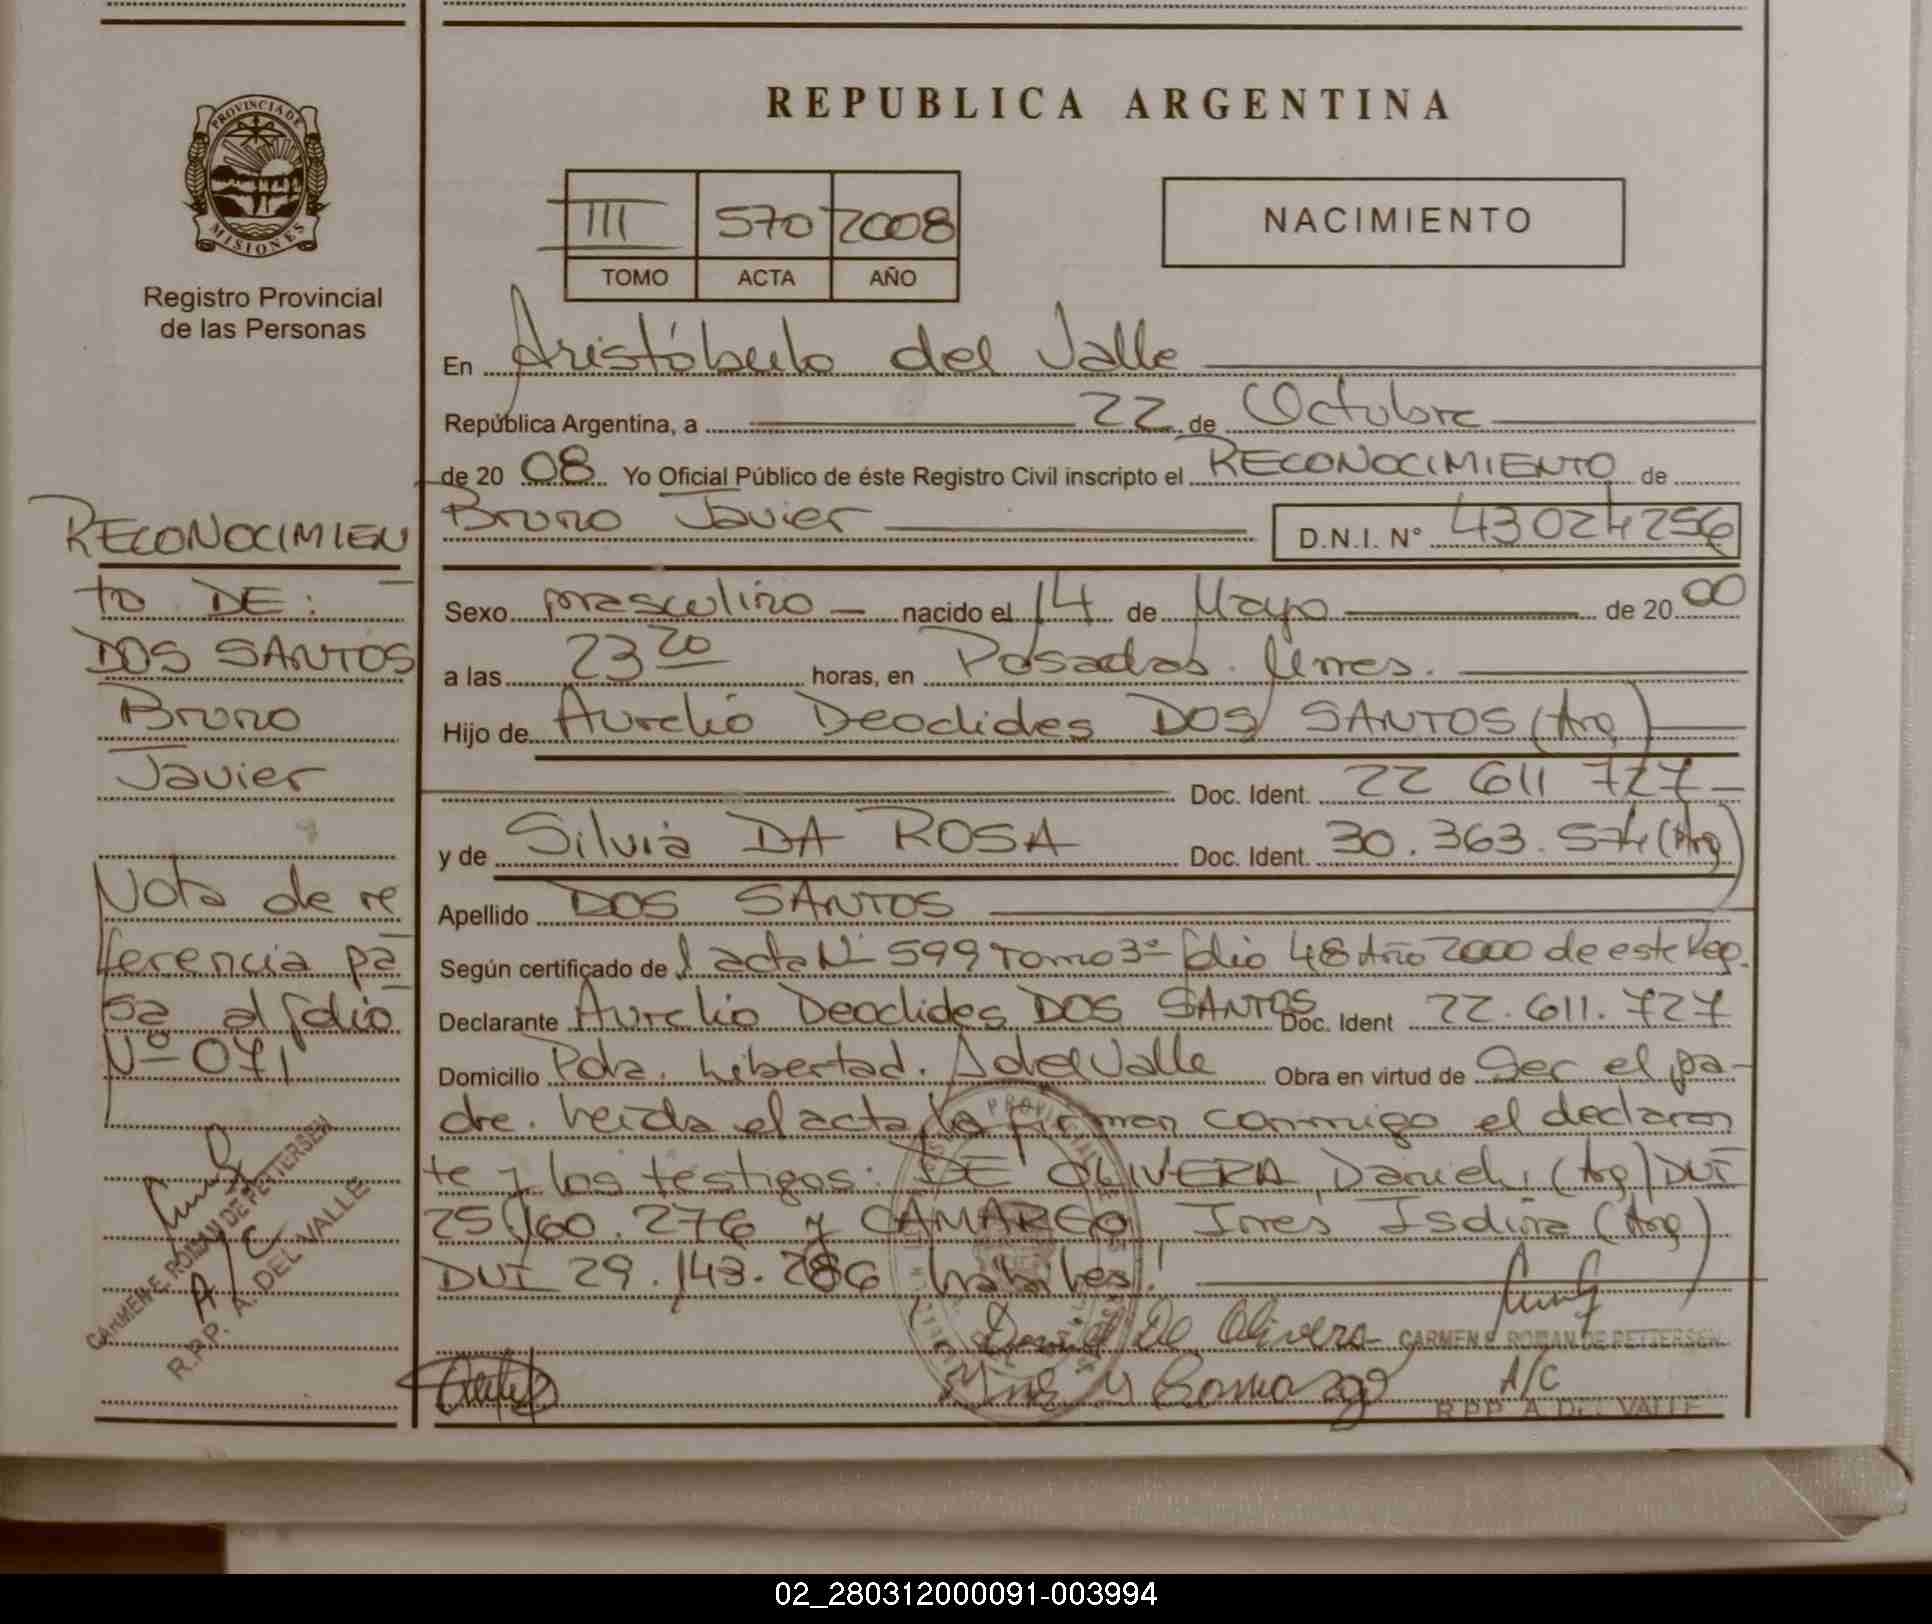 REPUBLICA ARGENTINA
PROVINCIA DE
MISIONES
Registro Provincial
de las Personas
III 570 2008
TOMO ACTA AÑO
NACIMIENTO
En Aristóbulo del Valle
República Argentina, a 22 de Octubre
de 20 08 Yo Oficial Público de éste Registro Civil inscripto el RECONOCIMIENTO de
Bruno Javier D.N.I. N° 43024256
Sexo masculino nacido el 14 de Mayo de 20 00
a las 23 20 horas, en Posadas. Mnes.
Hijo de Aurelio Deoclides DOS SANTOS (Arg)
Doc. Ident. 22 611 727
y de Silvia DA ROSA Doc. Ident. 30.363.574 (Arg)
Apellido DOS SANTOS
Según certificado de l acta Nº 599 Tomo 3º folio 48 Año 2000 de este Reg.
Declarante Aurelio Deoclides DOS SANTOS Doc. Ident 22.611.727
Domicilio Pda. Libertad. A del Valle Obra en virtud de Ser el pa-
dre. Leída el acta la firman conmigo el declaran
te y los testigos: DE OLIVERA, Daniel, (Arg) DUI
25.160.276 y CAMARGO, Ines Isolina (Arg)
DUI 29.143.286 habiles!
Daniel De Olivera
CARMEN E. ROMAN DE PETTERSEN
A/C
R.P.P. A. DEL VALLE
RECONOCIMIEN
to DE:
DOS SANTOS
Bruno
Javier
Nota de re
ferencia pa
sa al folio
Nº 071
CARMEN E. ROMAN DE PETTERSEN
A/C
R.P.P. A. DEL VALLE
02_280312000091-003994